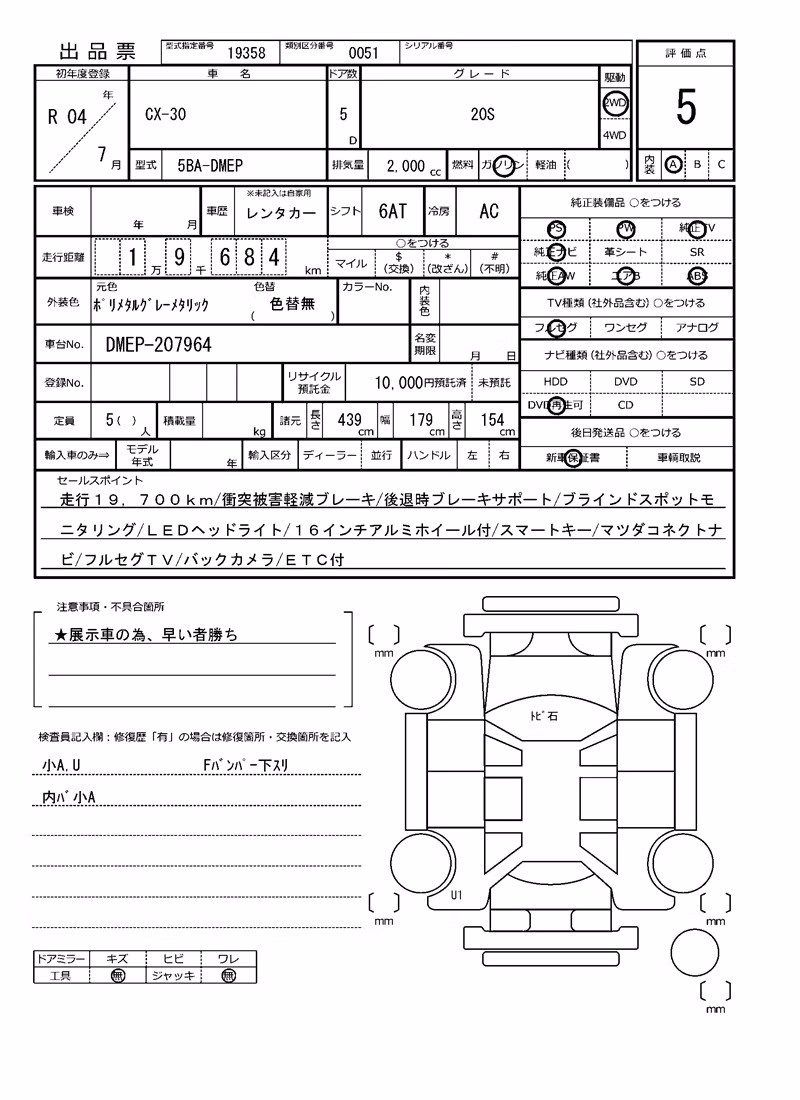 出品票 型式指定番号 19358 類別区分番号 0051 シリアル番号
評価点
初年度登録 車名 ドア数 グレード 駆動
R 04 年 7 月 CX-30 5 D 20S 2WD 4WD 5
型式 5BA-DMEP 排気量 2,000 cc 燃料 ガソリン 軽油 ( ) 内装 A B C
車検 年 月 車歴 ※未記入は自家用 レンタカー シフト 6AT 冷房 AC
純正装備品 ○をつける
PS PW 純正TV
純正ナビ 革シート SR
純正AW エアB ABS
走行距離 1 万 9 千 6 8 4 km ○をつける
マイル $(交換) *(改ざん) #(不明)
外装色 元色 ポリメタルグレーメタリック 色替 ( 色替無 ) カラーNo. 内装色
TV種類(社外品含む)○をつける
フルセグ ワンセグ アナログ
車台No. DMEP-207964 名変期限 月 日
ナビ種類(社外品含む)○をつける
HDD DVD SD
DVD再生可 CD
登録No. リサイクル預託金 10,000円預託済 未預託
定員 5( ) 人 積載量 kg 諸元 長さ 439 cm 幅 179 cm 高さ 154 cm
後日発送品 ○をつける
新車保証書 車輌取説
輸入車のみ⇒ モデル年式 年 輸入区分 ディーラー 並行 ハンドル 左 右
セールスポイント
走行19,700km/衝突被害軽減ブレーキ/後退時ブレーキサポート/ブラインドスポットモ
ニタリング/LEDヘッドライト/16インチアルミホイール付/スマートキー/マツダコネクトナ
ビ/フルセグTV/バックカメラ/ETC付
注意事項・不具合箇所
★展示車の為、早い者勝ち
検査員記入欄:修復歴「有」の場合は修復箇所・交換箇所を記入
小A,U Fバンパー下スリ
内バ小A
ドアミラー キズ ヒビ ワレ
工具 無 ジャッキ 無
mm
mm
トビ石
U1
mm
mm
mm